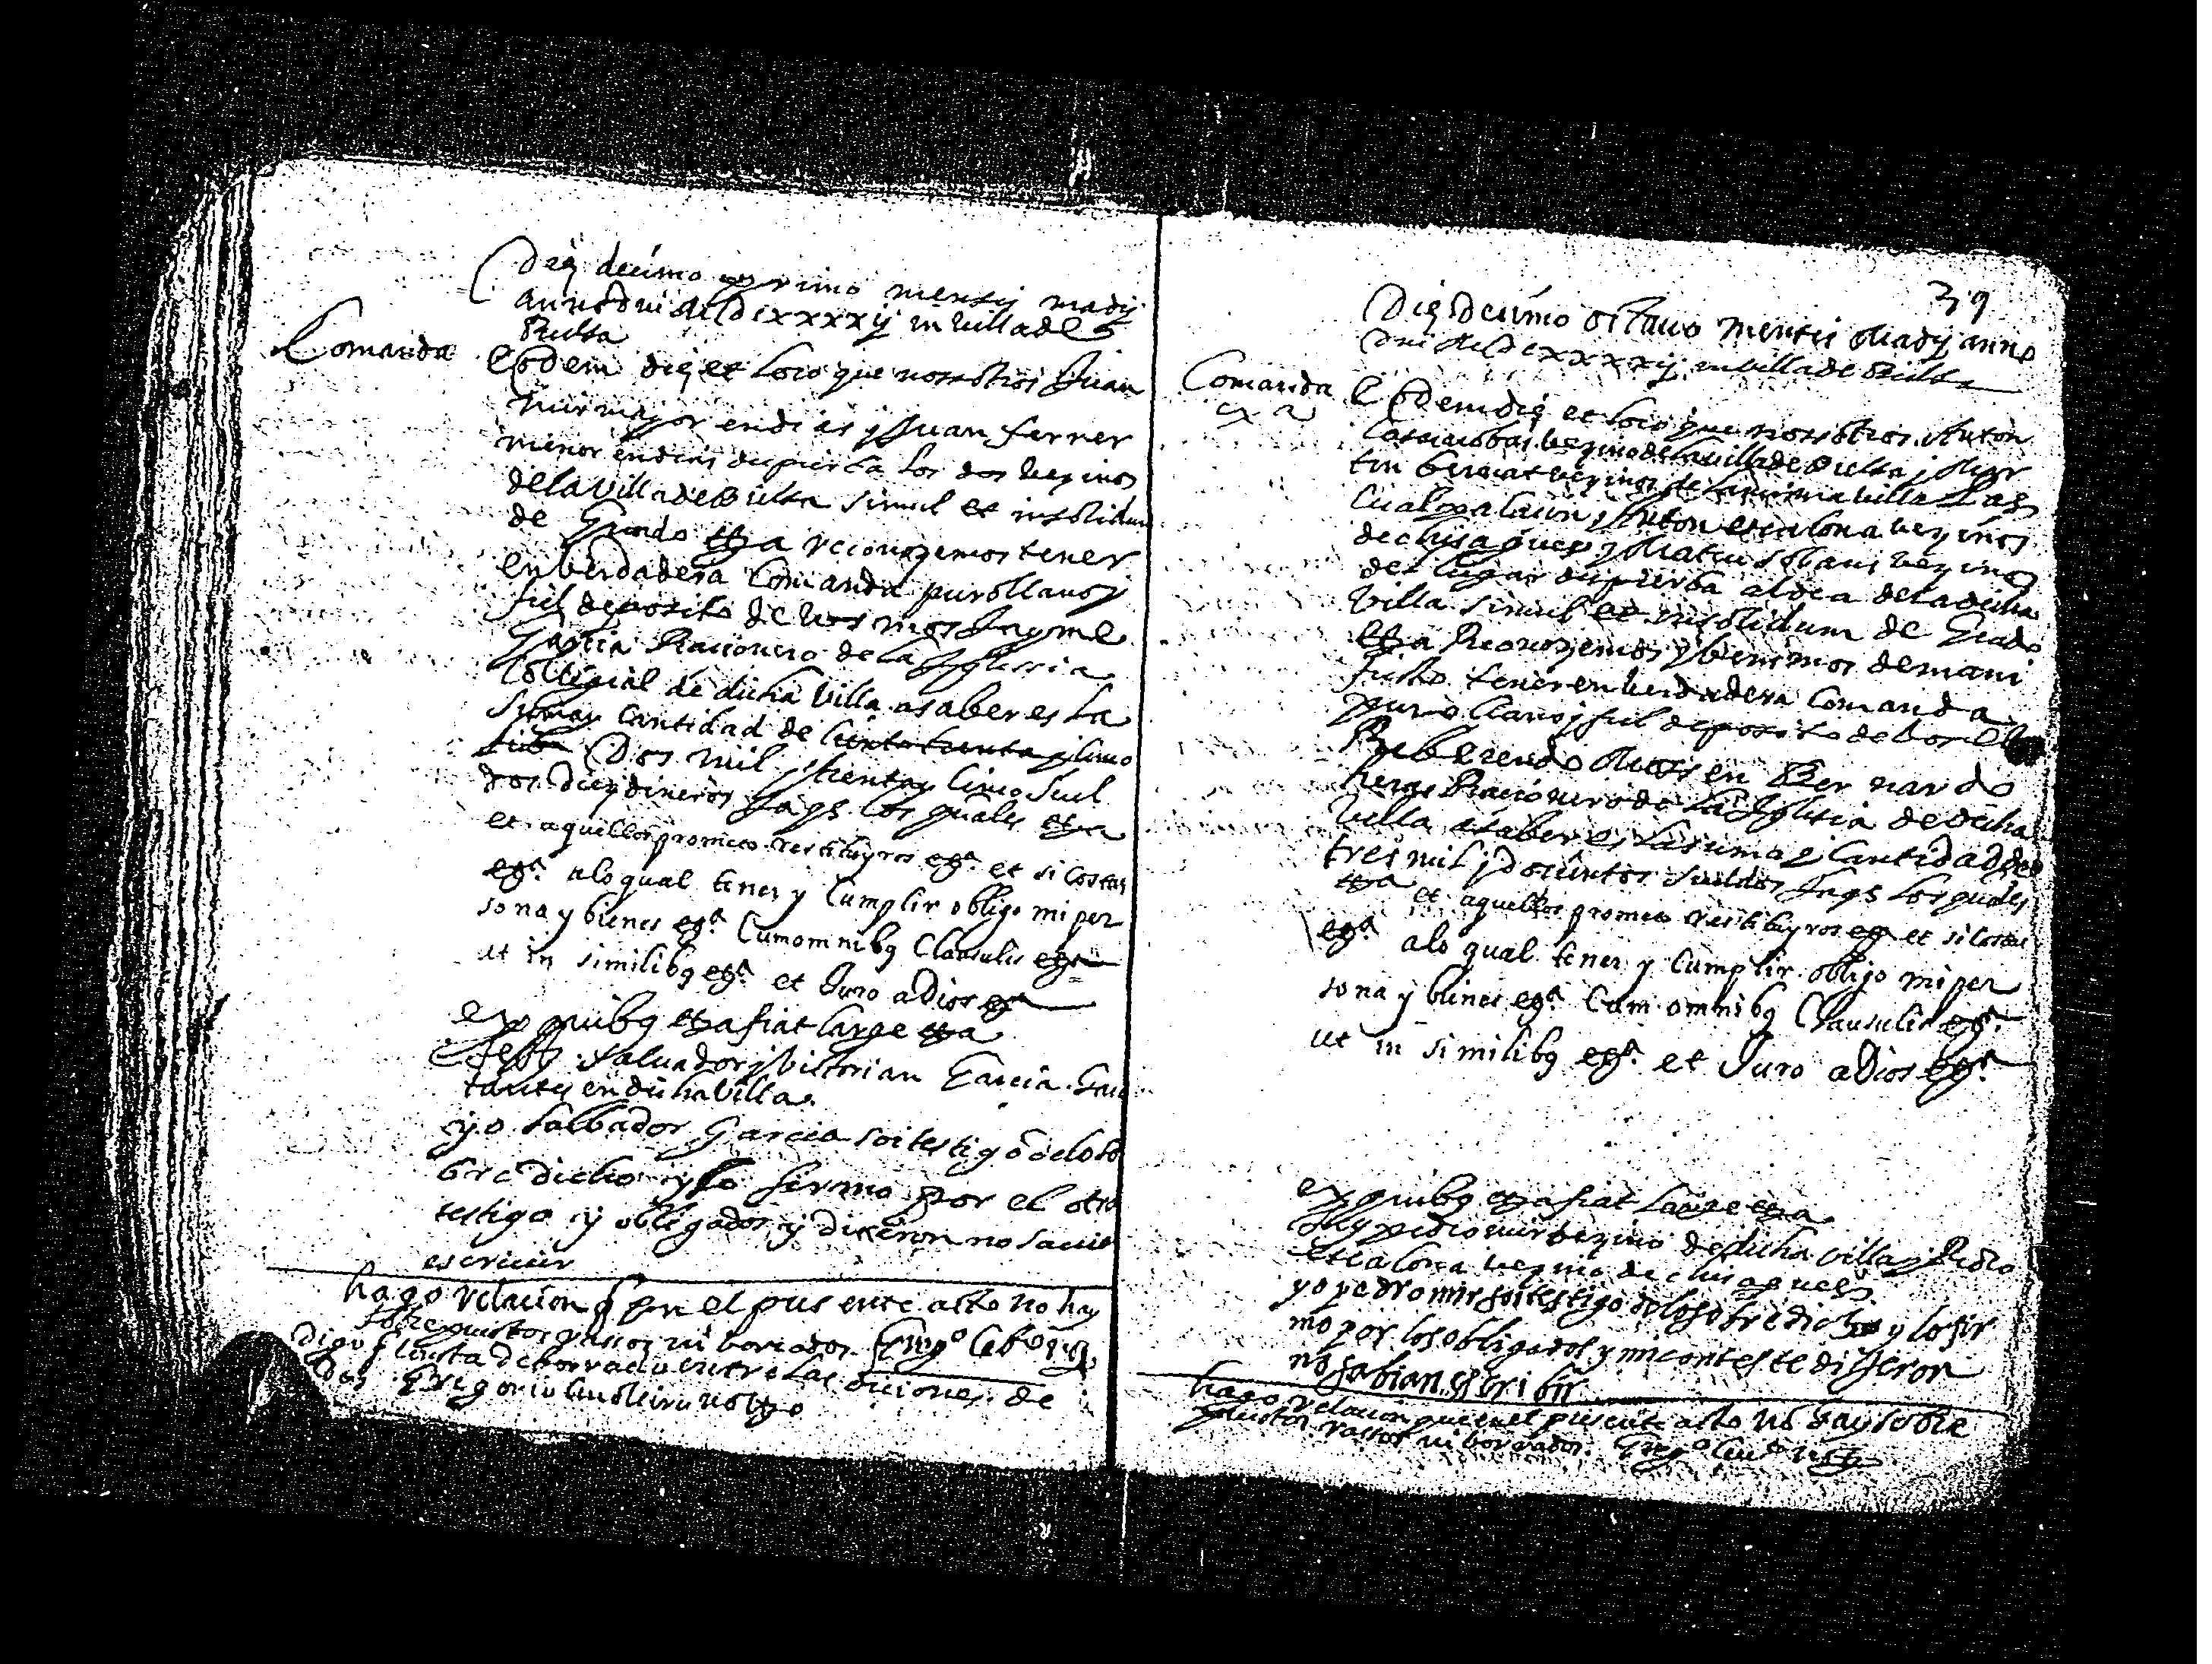 Die decimo primo mensis madij
anno dni MDCxxxxij in villa de
Bielsa
Comanda
Eodem die et loco que nosotros Juan
mur major en dias y Juan ferrer
menor en dias de pierta los dos vezinos
de la villa de Bielsa simul et insolidum
de Grado etza reconozemos tener
en berdadera Comanda puro llano y
fiel deposito de vos mos Jayme
Garcia Racionero de la Yglesia
Collegial de dicha Villa asaber es la
suma y Cantidad de ciento trenta y cinco
lib Dos mil y trenta y cinco suel
dos diez dineros Jaqs los quales etza
et aquellos prometo restituyros etza et si costas
etza alo qual tener y Cumplir obligo mi per
sona y bienes etza Cum omnibq Clausulis etza
ut in similibq etza et Juro a Dios etza
ex quibq etza fiat large etza
Testes Saluador y bictorian Garcia
en dicha Villa
yo Salbador Garcia soi testigo de lo so
bre dicho y lo firmo por el otro
testigo y obligados y dixeron no sauer
escriuir
hago relacion q en el pnte acto no hay
sobrepuestos rasos ni borrados Grego
digo q consta de borrado entre las diciones de
dos Gregorio notro
39
Die Decimo octauo mensis Madij anno
dni MDCxxxxij in villa de Bielsa
Comanda
Eodem die et loco que nosotros Anton
vezino de la Villa de Bielsa y Mar
tin bernat vezinos de la misma villa
y Anton escalona vezinos
de chisagues y Matheu solans vezinos
del lugar de pierta aldea de la dicha
Villa simul et insolidum de Grado
etza Reconozemos y benimos de mani
fiesto tener en berdadera Comanda
puro llano y fiel deposito de vos el
Reberendo Mosen Bernardo
Racionero de la Yglesia de dicha
Villa asaber es la suma y Cantidad de
tres mil y docientos sueldos Jaqs los quales
etza et aquellos prometo restituyros etza et si costas
etza alo qual tener y Cumplir obligo mi per
sona y bienes etza Cum omnibq Clausulis etza
ut in similibq etza et Juro a Dios etza
ex quibq etza fiat large etza
pedro mur vezino de dicha villa y Pedro
escalona vezino de chisagues
yo pedro mur soi testigo de lo sobredicho y lo fir
mo por los obligados y mi conteste dixeron
no sabian escribir
hago relacion que en el presente acto no hay sobre
puestos rasos ni borrados Grego